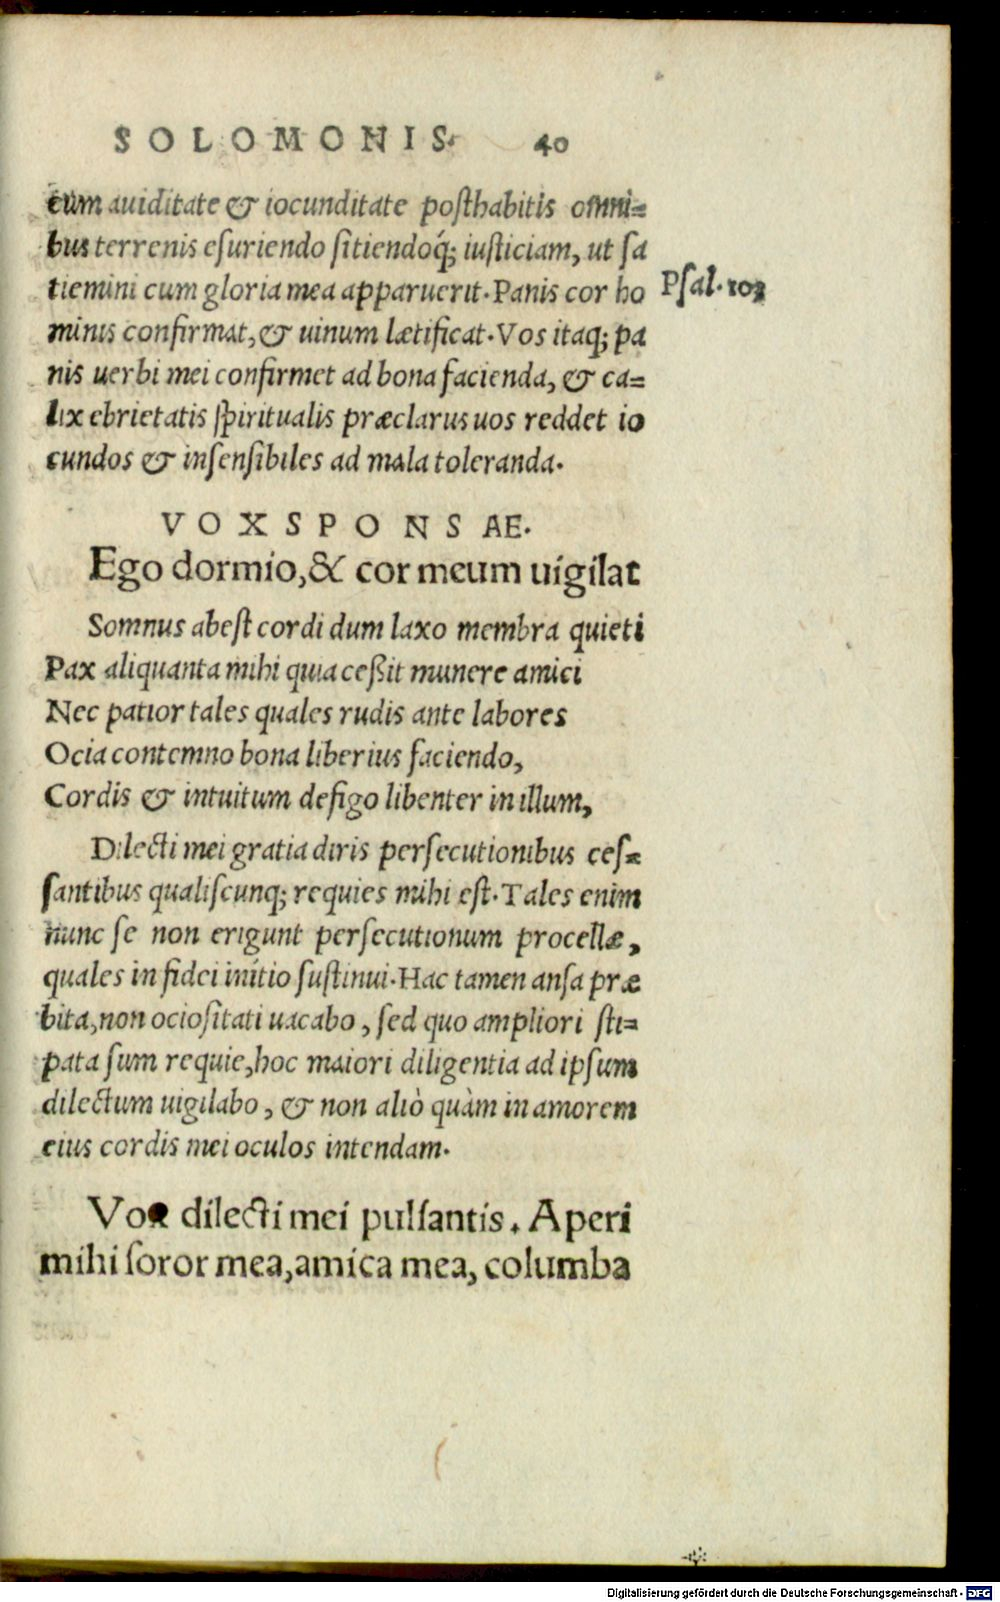 SOLOMONIS. 40
cum auiditate & iocunditate posthabitis omni=
bus terrenis esuriendo sitiendoq́; iusticiam, ut sa
tiemini cum gloria mea apparuerit. Panis cor ho
minis confirmat, & uinum lætificat. Vos itaq; pa
nis uerbi mei confirmet ad bona facienda, & ca=
lix ebrietatis spiritualis præclarus uos reddet io
cundos & insensibiles ad mala toleranda.
Psal. 103
VOX SPONSAE.
Ego dormio, & cor meum uigilat
Somnus abest cordi dum laxo membra quieti
Pax aliquanta mihi quia ceßit munere amici
Nec patior tales quales rudis ante labores
Ocia contemno bona liberius faciendo,
Cordis & intuitum defigo libenter in illum,
Dilecti mei gratia diris persecutionibus ces=
santibus qualiscunq; requies mihi est. Tales enim
nunc se non erigunt persecutionum procellæ,
quales in fidei initio sustinui. Hac tamen ansa præ
bita, non ociositati uacabo, sed quo ampliori sti=
pata sum requie, hoc maiori diligentia ad ipsum
dilectum uigilabo, & non aliò quàm in amorem
eius cordis mei oculos intendam.
Vox dilecti mei pulsantis. Aperi
mihi soror mea, amica mea, columba
Digitalisierung gefördert durch die Deutsche Forschungsgemeinschaft - DFG